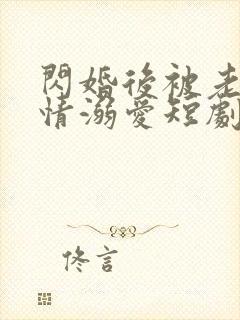 閃婚後被老
情溺愛短劇
佟言